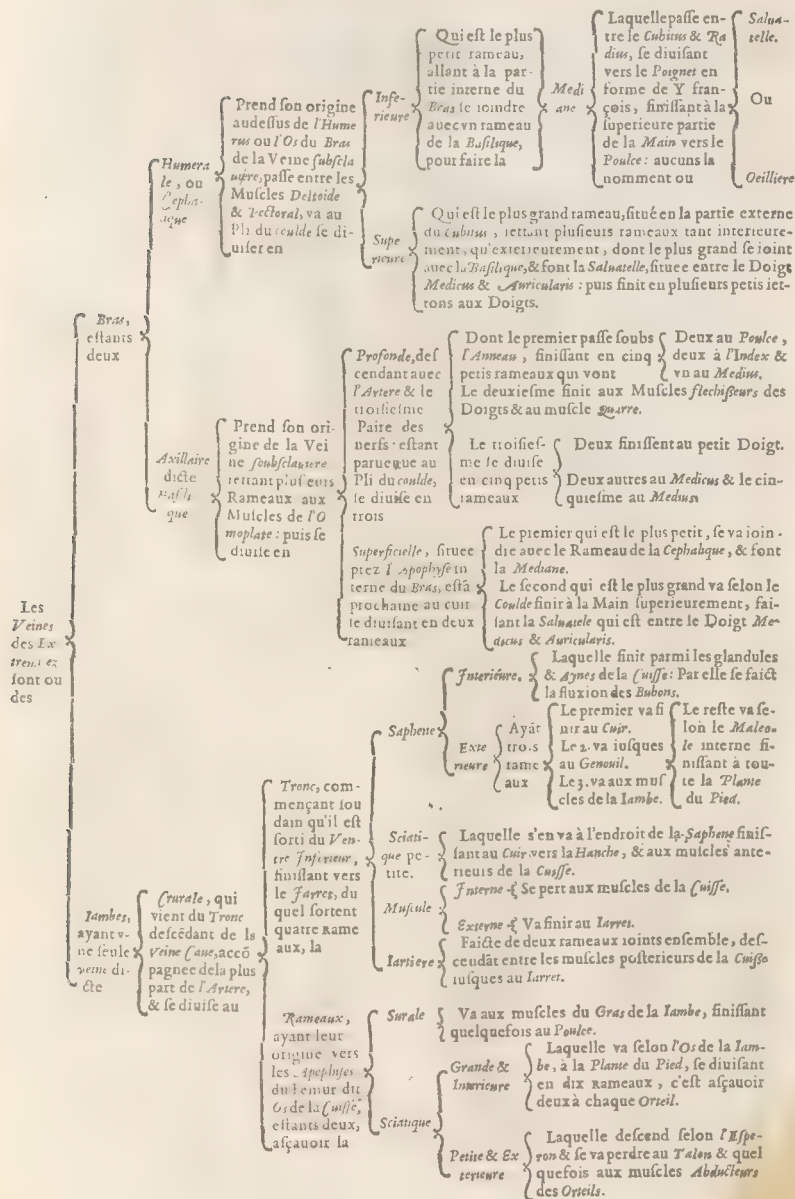 Les
Veines
des Ex
tremitez
sont ou
des
Bras,
estants
deux
Humera
le, ou
Cepha-
lique
Prend son origine
audessus de l'Hume
rus ou l'Os du Bras
de la Veine subscla
uiere, passe entre les
Muscles Deltoide
& Pectoral, va au
Pli du coulde se di-
uiser en
Infe-
rieure
Qui est le plus
petit rameau,
allant à la par
tie interne du
Bras se ioindre
auec vn rameau
de la Basilique,
pour faire la
Medi
ane
Laquelle passe en-
tre le Cubitus & Ra
dius, se diuisant
vers le Poignet en
forme de Y fran-
çois, finissant à la
superieure partie
de la Main vers le
Poulce: aucuns la
nomment ou
Salua-
telle.
Ou
Oeilliere
Supe
rieure
Qui est le plus grand rameau, situé en la partie externe
du Cubitus, iettant plusieurs rameaux tant interieure-
ment, qu'exterieurement, dont le plus grand se ioint
auec la Basilique, & font la Saluatelle, situee entre le Doigt
Medicus & Auricularis: puis finit en plusieurs petis iet-
tons aux Doigts.
Axillaire
dicte
Basili
que
Prend son ori-
gine de la Vei
ne soubsclauiere
iettant plusieurs
Rameaux aux
Muscles de l'O
moplate: puis se
diuise en
Profonde, des
cendant auec
l'Artere & le
troisiesme
Paire des
nerfs: estant
paruenue au
Pli du coulde,
se diuise en
trois
Dont le premier passe soubs
l'Anneau, finissant en cinq
petis rameaux qui vont
Deux au Poulce,
deux à l'Index &
vn au Medius.
Le deuxiesme finit aux Muscles flechisseurs des
Doigts & au muscle Quarre.
Le troisies-
me se diuise
en cinq petis
rameaux
Deux finissent au petit Doigt.
Deux autres au Medicus & le cin-
quiesme au Medius
Superficielle, situee
prez l'Apophyse in
terne du Bras, está
prochaine au cuir
se diuisant en deux
rameaux
Le premier qui est le plus petit, se va ioin-
dre auec le Rameau de la Cephalique, & font
la Mediane.
Le second qui est le plus grand va selon le
Coulde finir à la Main superieurement, fai-
sant la Saluatele qui est entre le Doigt Me-
dicus & Auricularis.
Iambes,
ayant v-
ne seule
veine di-
cte
Crurale, qui
vient du Tronc
descédant de la
Veine Caue, accó
pagnee de la plus
part de l'Artere,
& se diuise au
Tronc, com-
mençant sou
dain qu'il est
sorti du Ven-
tre Inferieur,
finissant vers
le Jarret, du
quel sortent
quatre Rame
aux, la
Saphene
Interieure.
Laquelle finit parmi les glandules
& Aynes de la Cuisse: Par elle se faict
la fluxion des Bubons.
Exte
rieure
Ayãt
trois
rame
aux
Le premier va fi
nir au Cuir.
Le 2. va iusques
au Genouil.
Le 3. va aux mus
cles de la Iambe.
Le reste va se-
lon le Maleo-
le interne fi-
nissant à tou-
te la Plante
du Pied.
Sciati-
que pe-
tite.
Laquelle s'en va à l'endroit de la Saphene finis-
sant au Cuir vers la Hanche, & aux muscles ante-
rieurs de la Cuisse.
Muscule
Interne
Se pert aux muscles de la Cuisse,
Externe
Va finir au Iarret.
Iartiere
Faicte de deux rameaux ioints ensemble, des-
cendãt entre les muscles posterieurs de la Cuisse
iusques au Iarret.
Rameaux,
ayant leur
origine vers
les Apophises
du Femur du
Os de la Cuisse,
estants deux,
asçauoir la
Surale
Va aux muscles du Gras de la Iambe, finissant
quelquefois au Poulce.
Sciatique
Grande &
Interieure
Laquelle va selon l'Os de la Iam-
be, à la Plante du Pied, se diuisant
en dix Rameaux, c'est asçauoir
deux à chaque Orteil.
Petite & Ex
terieure
Laquelle descend selon l'Espe-
ron & se va perdre au Talon & quel
quefois aux muscles Abducteurs
des Orteils.